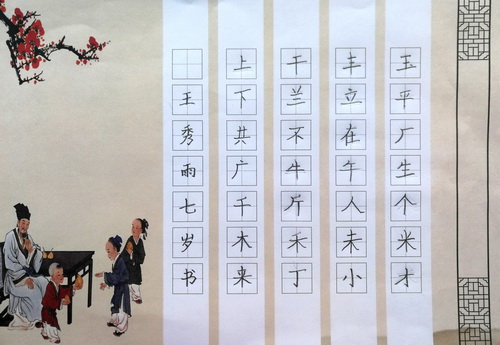 玉平厂生个米才
丰立在午人未小
干兰不牛斤禾丁
上下共广千木来
王秀雨七岁书